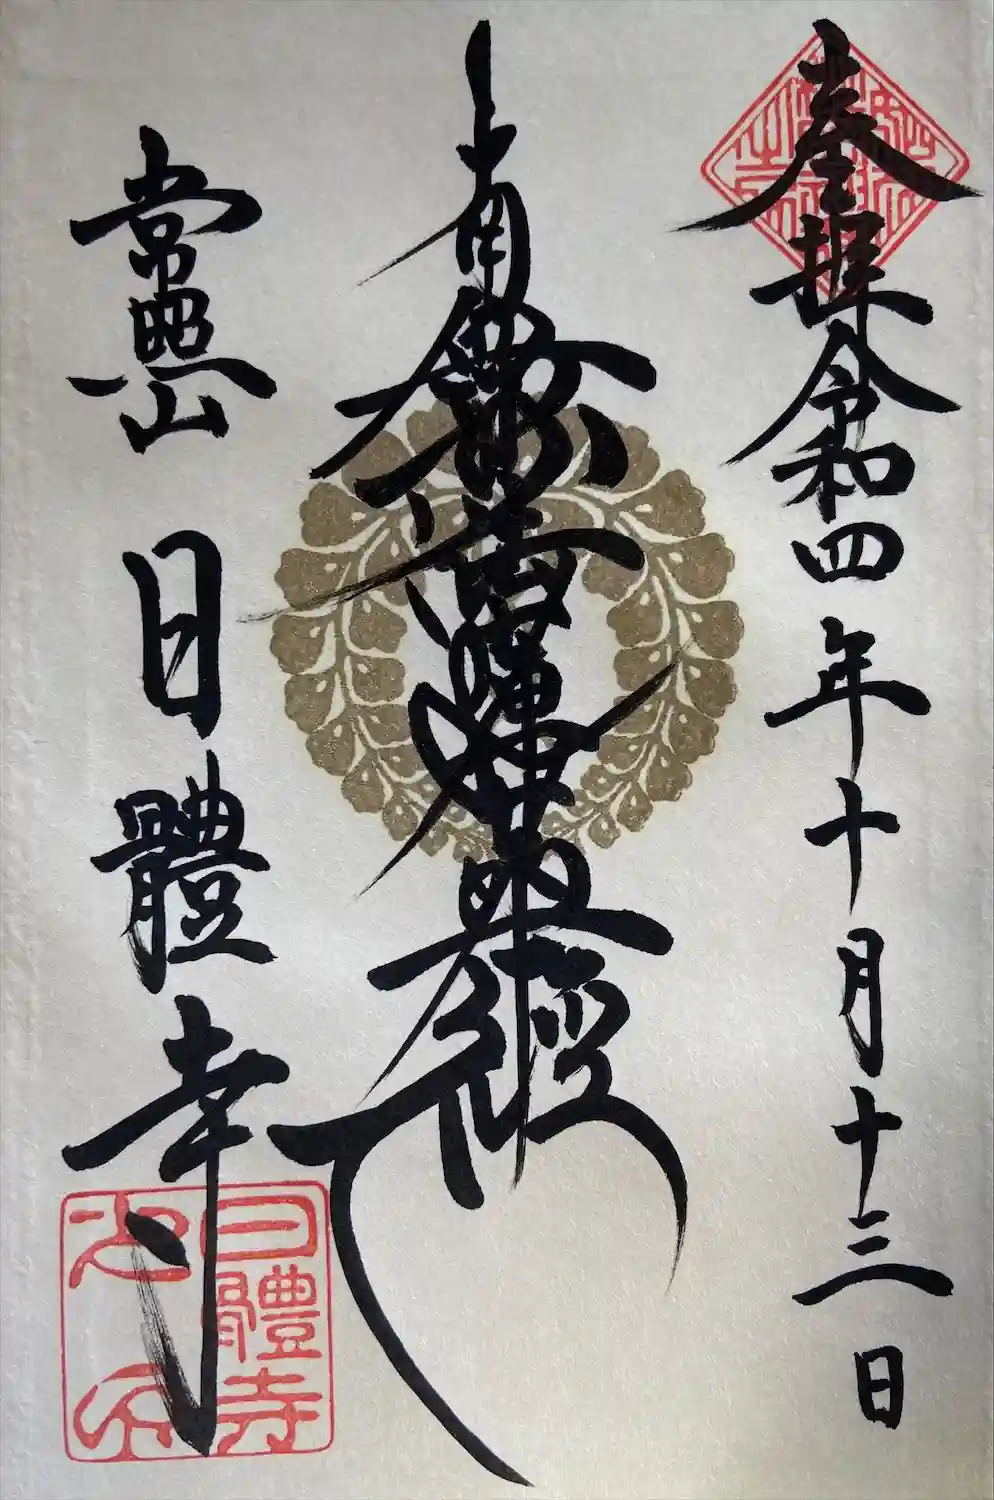 奉拝 令和四年十月十三日
南無妙法蓮華経
常照山
日體寺
日體寺
之印